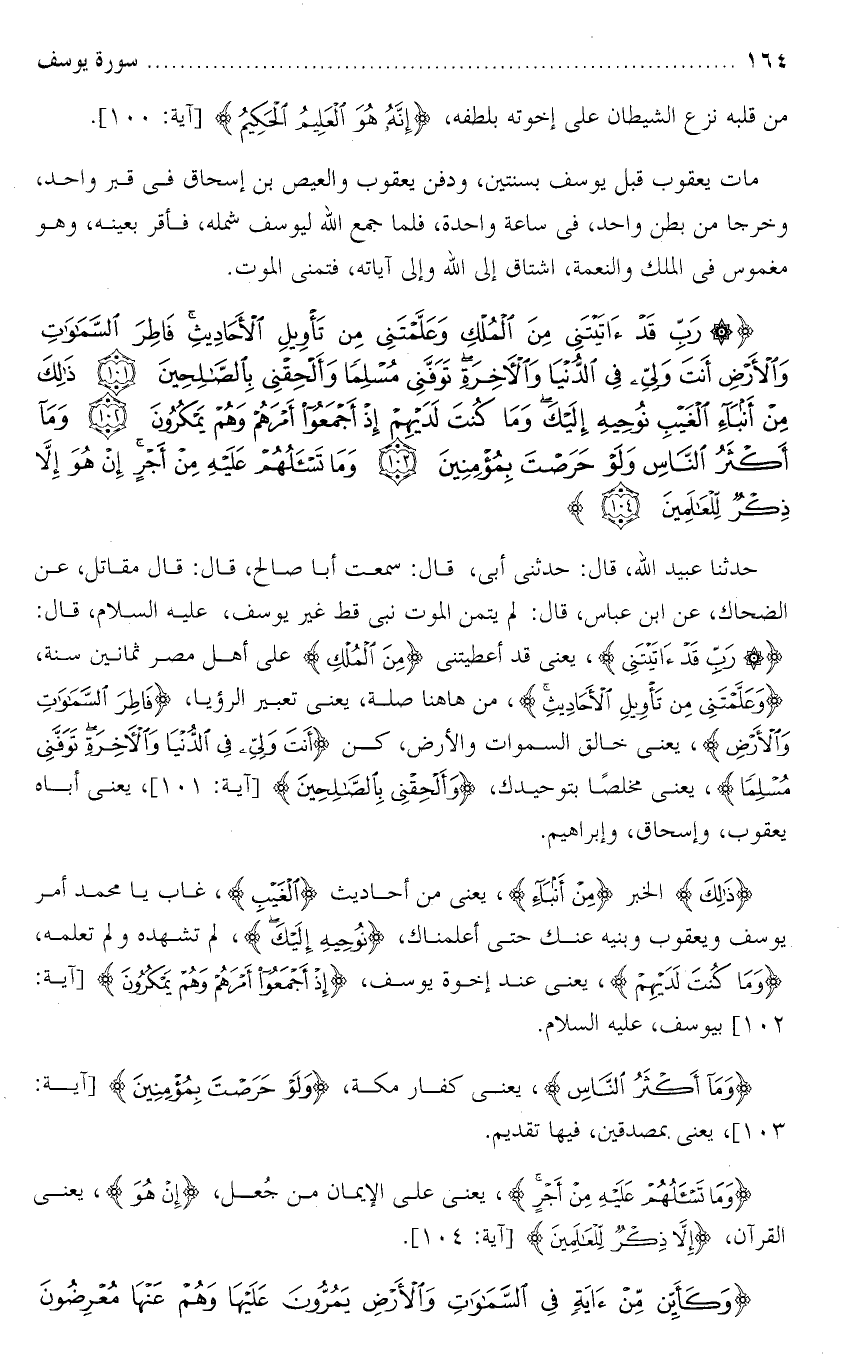 ١٦٤ ........................................................................ سورة يوسف
من قلبه نزع الشيطان على إخوته بلطفه، ﴿إِنَّهُۥ هُوَ ٱلْعَلِيمُ ٱلْحَكِيمُ﴾ [آية: ١٠٠].
مات يعقوب قبل يوسف بسنتين، ودفن يعقوب والعيص بن إسحاق فى قبر واحد،
وخرجا من بطن واحد، فى ساعة واحدة، فلما جمع الله ليوسف شمله، فأقر بعينه، وهو
مغموس فى الملك والنعمة، اشتاق إلى الله وإلى آياته، فتمنى الموت.
﴿۞ رَبِّ قَدْ ءَاتَيْتَنِى مِنَ ٱلْمُلْكِ وَعَلَّمْتَنِى مِن تَأْوِيلِ ٱلْأَحَادِيثِۚ فَاطِرَ ٱلسَّمَٰوَٰتِ
وَٱلْأَرْضِ أَنتَ وَلِىِّۦ فِى ٱلدُّنْيَا وَٱلْأَخِرَةِۖ تَوَفَّنِى مُسْلِمًا وَأَلْحِقْنِى بِٱلصَّٰلِحِينَ ١٠١ ذَٰلِكَ
مِنْ أَنۢبَآءِ ٱلْغَيْبِ نُوحِيهِ إِلَيْكَۖ وَمَا كُنتَ لَدَيْهِمْ إِذْ أَجْمَعُوٓا۟ أَمْرَهُمْ وَهُمْ يَمْكُرُونَ ١٠٢ وَمَآ
أَكْثَرُ ٱلنَّاسِ وَلَوْ حَرَصْتَ بِمُؤْمِنِينَ ١٠٣ وَمَا تَسْـَٔلُهُمْ عَلَيْهِ مِنْ أَجْرٍۚ إِنْ هُوَ إِلَّا
ذِكْرٌ لِّلْعَٰلَمِينَ ١٠٤ ﴾
حدثنا عبيد الله، قال: حدثنى أبى، قال: سمعت أبا صالح، قال: قال مقاتل، عن
الضحاك، عن ابن عباس، قال: لم يتمن الموت نبى قط غير يوسف، عليه السلام، قال:
﴿۞ رَبِّ قَدْ ءَاتَيْتَنِى﴾، يعنى قد أعطيتنى ﴿مِنَ ٱلْمُلْكِ﴾ على أهل مصر ثمانين سنة،
﴿وَعَلَّمْتَنِى مِن تَأْوِيلِ ٱلْأَحَادِيثِۚ﴾، من هاهنا صلة، يعنى تعبير الرؤيا، ﴿فَاطِرَ ٱلسَّمَٰوَٰتِ
وَٱلْأَرْضِ﴾، يعنى خالق السموات والأرض، كن ﴿أَنتَ وَلِىِّۦ فِى ٱلدُّنْيَا وَٱلْأَخِرَةِۖ تَوَفَّنِى
مُسْلِمًا﴾، يعنى مخلصًا بتوحيدك، ﴿وَأَلْحِقْنِى بِٱلصَّٰلِحِينَ﴾ [آية: ١٠١]، يعنى أباه
يعقوب، وإسحاق، وإبراهيم.
﴿ذَٰلِكَ﴾ الخبر ﴿مِنْ أَنۢبَآءِ﴾، يعنى من أحاديث ﴿ٱلْغَيْبِ﴾، غاب يا محمد أمر
يوسف ويعقوب وبنيه عنك حتى أعلمناك، ﴿نُوحِيهِ إِلَيْكَۖ﴾، لم تشهده ولم تعلمه،
﴿وَمَا كُنتَ لَدَيْهِمْ﴾، يعنى عند إخوة يوسف، ﴿إِذْ أَجْمَعُوٓا۟ أَمْرَهُمْ وَهُمْ يَمْكُرُونَ﴾ [آية:
١٠٢] بيوسف، عليه السلام.
﴿وَمَآ أَكْثَرُ ٱلنَّاسِ﴾، يعنى كفار مكة، ﴿وَلَوْ حَرَصْتَ بِمُؤْمِنِينَ﴾ [آية:
١٠٣]، يعنى بمصدقين، فيها تقديم.
﴿وَمَا تَسْـَٔلُهُمْ عَلَيْهِ مِنْ أَجْرٍۚ﴾، يعنى على الإيمان من جُعل، ﴿إِنْ هُوَ﴾، يعنى
القرآن، ﴿إِلَّا ذِكْرٌ لِّلْعَٰلَمِينَ﴾ [آية: ١٠٤].
﴿وَكَأَيِّن مِّنْ ءَايَةٍ فِى ٱلسَّمَٰوَٰتِ وَٱلْأَرْضِ يَمُرُّونَ عَلَيْهَا وَهُمْ عَنْهَا مُعْرِضُونَ